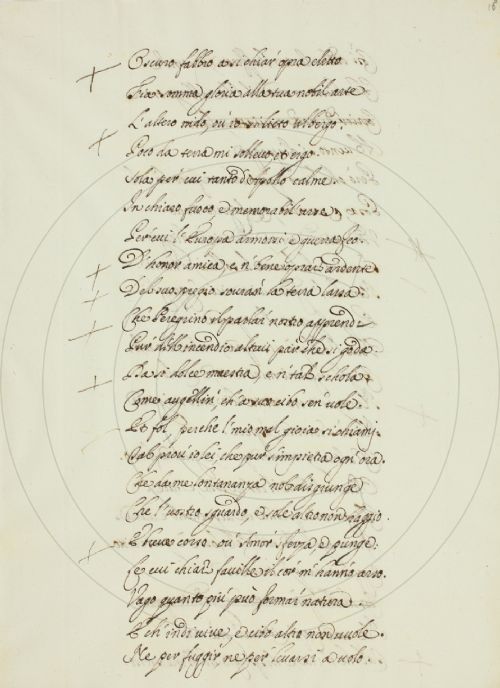 18
Oscuro fabbro a sì chiar' opra eletto
Fia somma gloria alla tua nobil arte
L'altero nido, ov'io sì lieto albergo.
Poco da terra mi sollevo et ergo.
Sola per cui tanto d'Apollo calme
In chiaro fuoco, e memorabil arse
Per cui l'Europa armossi, e guerra feo.
D'honor amica, e n' bene oprar ardente
Del suo pregio sovran la terra lassa.
Che Peregrino il parlar nostro apprende
Pur dell'incendio altrui par che si goda.
Da sì dolce maestra, e n' tal schola
Come augellin, ch'a suo cibo sen' vole.
Et fol, perche l'mio mal gioia si chiami,
Tal provi io lei, che pur s'impietra ogn'ora.
Che da me lontananza nol disgiunge
Che l'vostro sguardo, e sole altro non haggio.
E breve corso ov'Amor sferza e punge:
Le cui chiare faville il cor' m'hanno arso.
Vago quanto più può formar natura
E ch'indi vive, e cibo altro non vuole.
Ne per fuggir, ne per levarsi a volo.